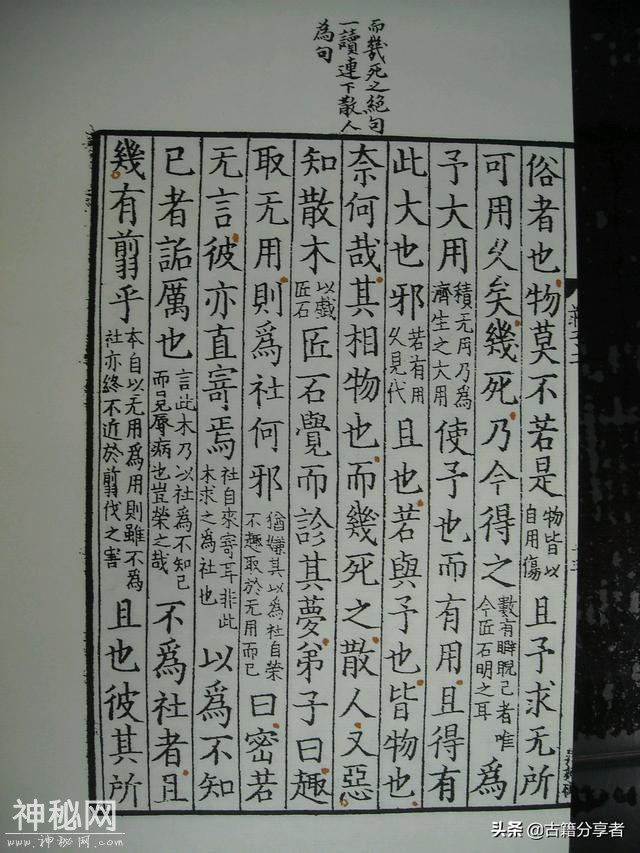 而㡬死之絕句
一讀連下散人
為句
俗者也物莫不若是物皆以自用傷且予求无所
可用久矣幾死乃今得之數有睥睨己者唯今匠石明之耳為
予大用積无用乃為濟生之大用使予也而有用且得有
此大也邪若有用久見代且也若與予也皆物也
奈何哉其相物也而幾死之散人又惡
知散木以戲匠石匠石覺而診其夢弟子曰趣
取无用則為社何邪猶嫌其以為社自榮不趣取於无用而已曰密若
无言彼亦直寄焉社自來寄耳非此木求之為社也以為不知
己者詬厲也言此木乃以社為不知己而見辱病也豈榮之哉不為社者且
幾有翦乎本自以无用為用則雖不為社亦終不近於翦伐之害且也彼其所
神秘网
www.神秘网.com
头条 @古籍分享者